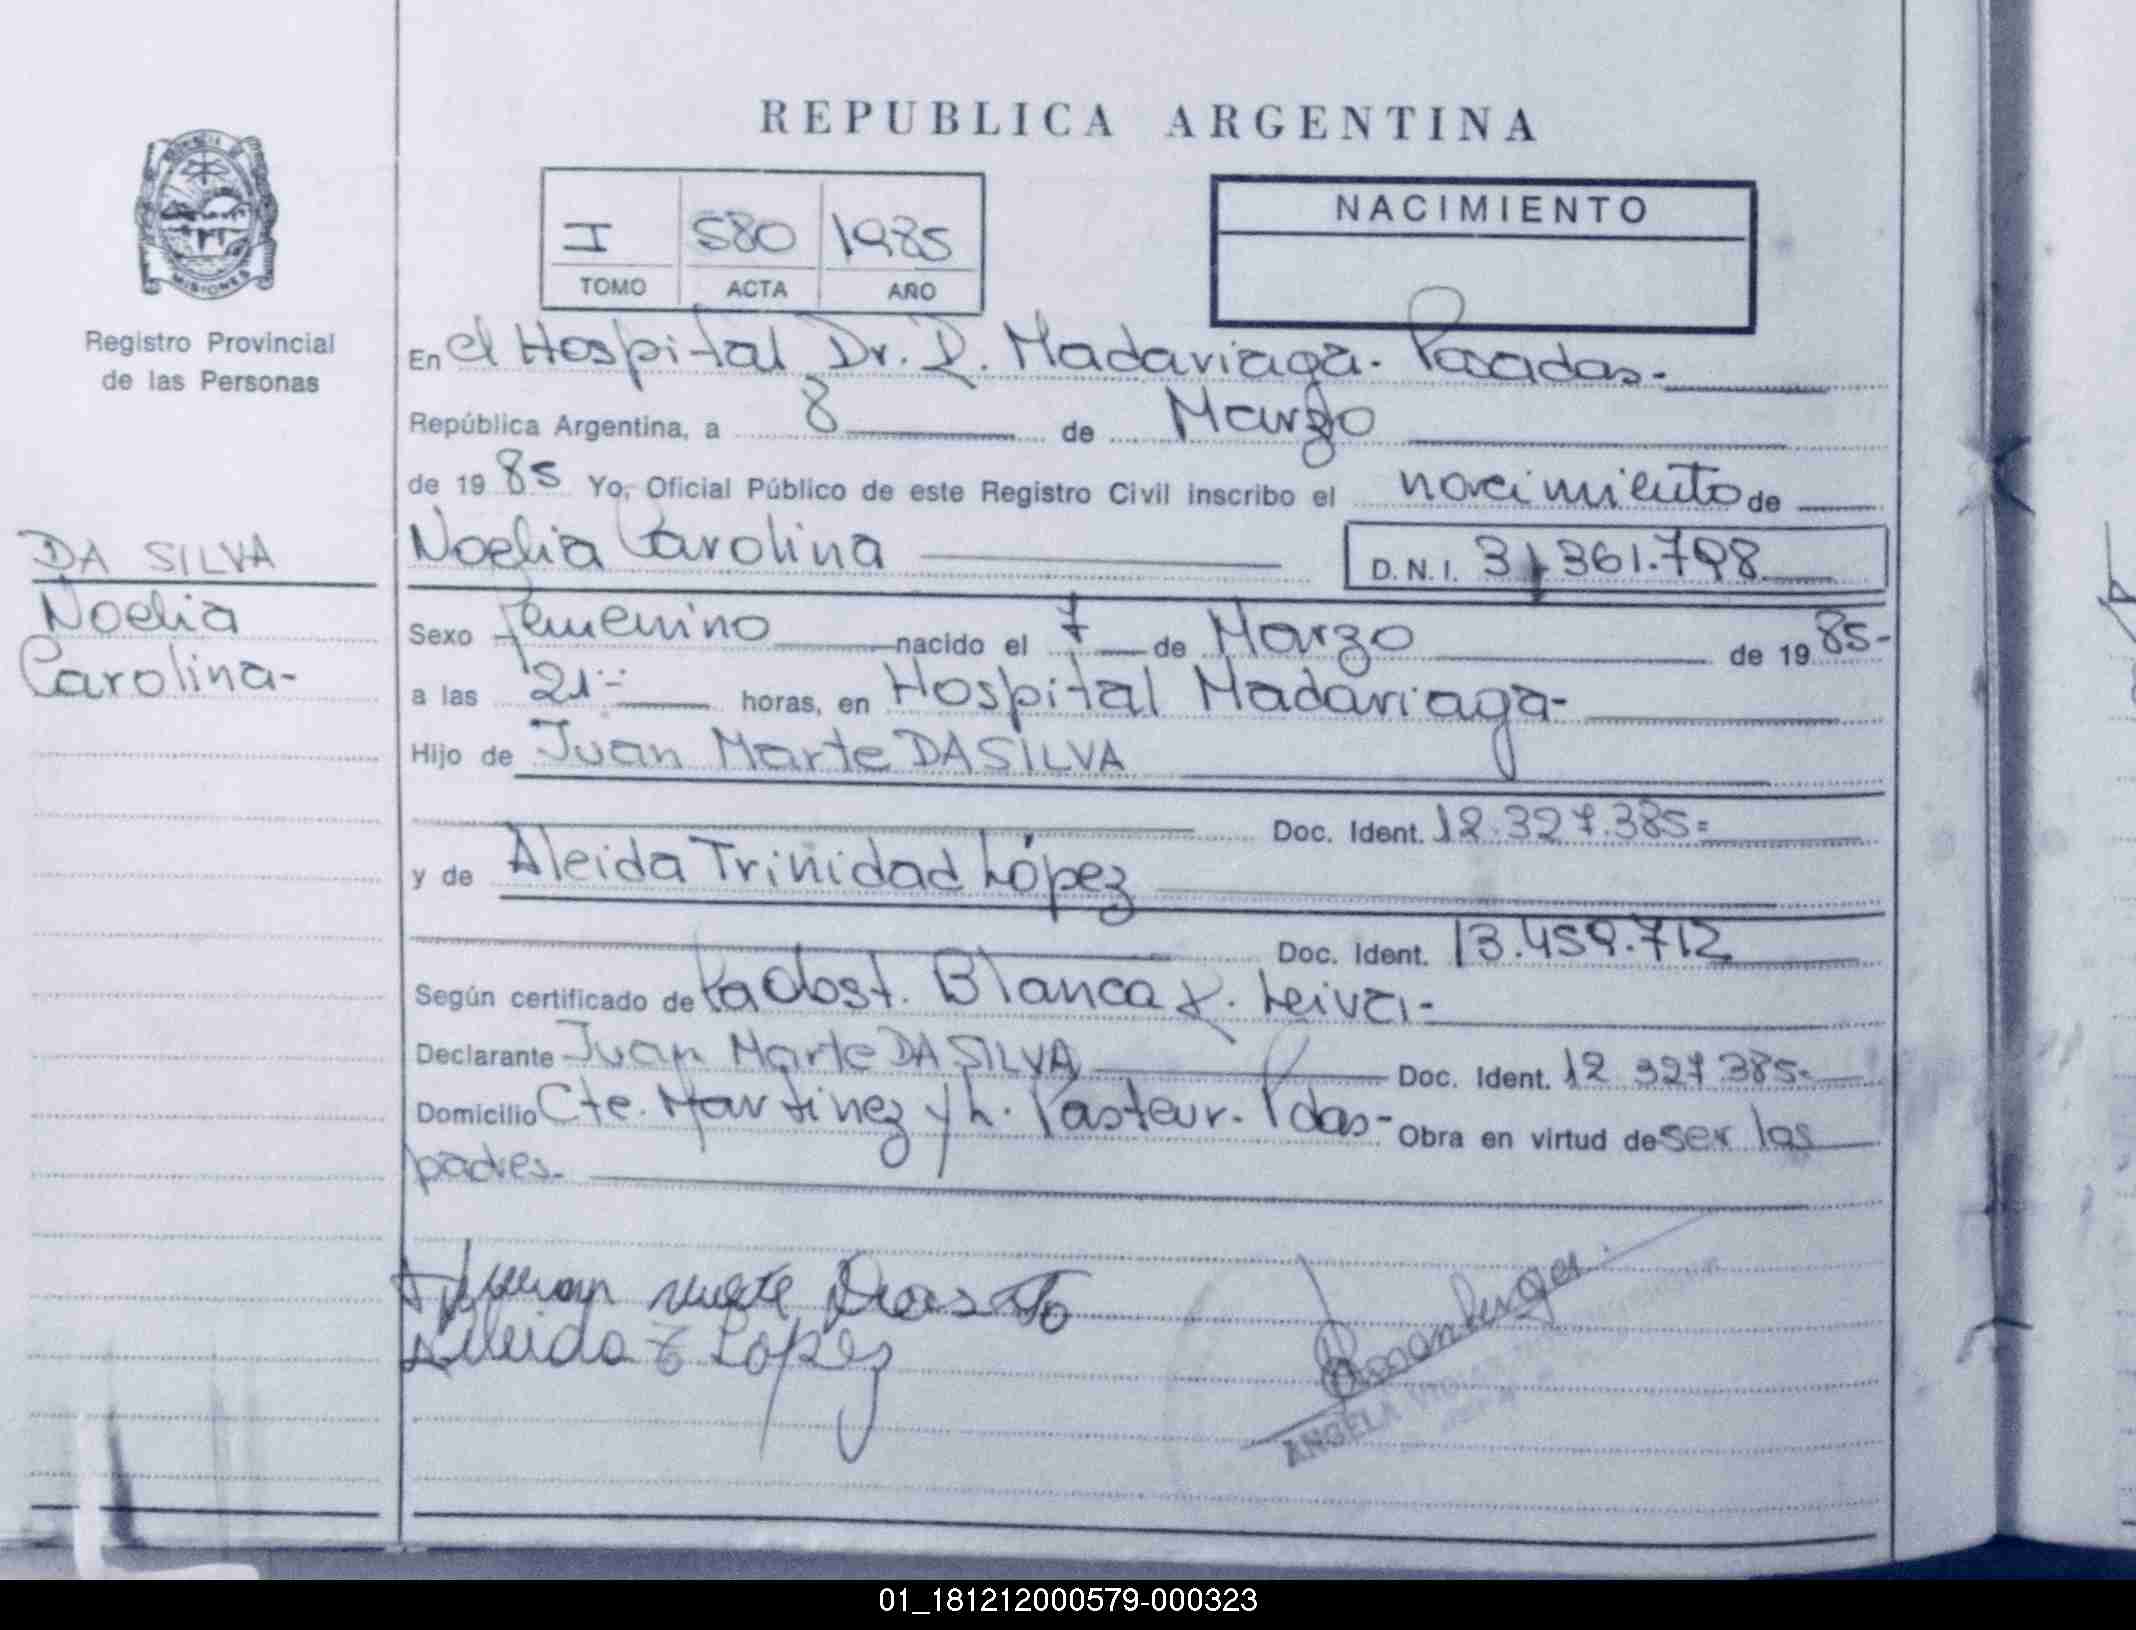 REPUBLICA ARGENTINA
I 580 1985
TOMO ACTA AÑO
NACIMIENTO
MISIONES
Registro Provincial
de las Personas
DA SILVA
Noelia
Carolina-
En el Hospital Dr. R. Madariaga- Posadas-
República Argentina, a 8 de Marzo
de 1985 Yo, Oficial Público de este Registro Civil inscribo el nacimiento de
Noelia Carolina D.N.I. 31.361.798
Sexo femenino nacido el 7 de Marzo de 1985-
a las 21 horas, en Hospital Madariaga-
Hijo de Juan Marte DA SILVA
Doc. Ident. 12.327.385=
y de Aleida Trinidad López
Doc. Ident. 13.459.712
Según certificado de la Obst. Blanca Leiva-
Declarante Juan Marte DA SILVA Doc. Ident. 12 327 385-
Domicilio Cte. Martinez y L. Pasteur- Pdas- Obra en virtud de ser los
padres-
Aleida T Lopez
ANGELA
01_181212000579-000323